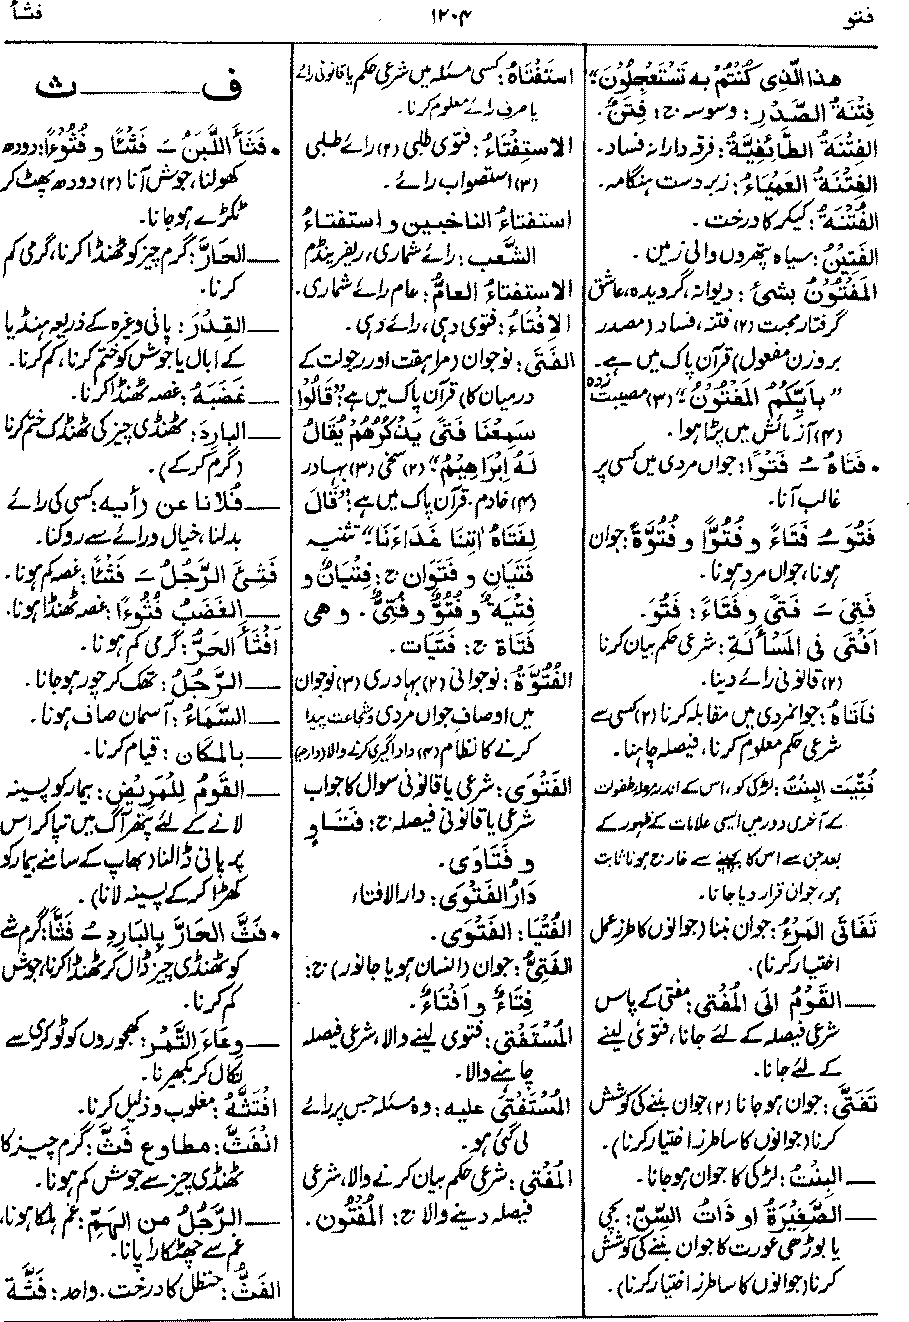 فتو
۱۲۰۴
فثأ
هذا الَّذِى كُنْتُمْ بِه تَسْتَعْجِلُوْنَ"
فِتْنَةُ الصَّدْرِ: وسوسہ ج: فِتَنٌ.
الفِتْنَةُ الطَّائِفِيَّةُ: فرقہ دارانہ فساد۔
الفِتْنَةُ العَمْيَاءُ: زبردست ہنگامہ۔
الفُتْنَةُ: کیکر کا درخت۔
الفَتِيْنُ: سیاہ پتھروں والی زمین۔
المَفْتُوْنُ بشئ: دیوانہ، گرویدہ، عاشق
گرفتار محبت (۲) فتنہ، فساد (مصدر
بروزن مفعول) قرآن پاک میں ہے۔
"بِاَيِّكُمُ المَفْتُوْنُ" (۳) مصیبت زدہ
(۴) آزمائش میں پڑا ہوا۔
• فَتَاهُ ـُ فَتْوًا: جواں مردی میں کسی پر
غالب آنا۔
فَتُوَ ـُ فَتَاءً و فُتُوًّا و فُتُوَّةً: جوان
ہونا، جواں مرد ہونا۔
فَتِىَ ـَ فَتًى و فَتَاءً: فَتُوَ.
اَفْتٰى فى المَسْأَلَةِ: شرعی حکم بیان کرنا
(۲) قانونی رائے دینا۔
فَاتَاهُ: جوانمردی میں مقابلہ کرنا (۲) کسی سے
شرعی حکم معلوم کرنا، فیصلہ چاہنا۔
فُتِّيَت البِنْتُ: لڑکی کو، اس کے اندر مرحلۂ طفولت
کے آخری دور میں ایسی علامات کے ظہور کے
بعد جن سے اس کا بچپنے سے خارج ہونا ثابت
ہو، جوان قرار دیا جانا۔
تَفَاتَى المَرْءُ: جوان بننا (جوانوں کا طرز عمل
اختیار کرنا)۔
ــــ القَوْمُ الى المُفْتِى: مفتی کے پاس
شرعی فیصلہ کے لئے جانا، فتویٰ لینے
کے لئے جانا۔
تَفَتَّى: جوان ہو جانا (۲) جوان بننے کی کوشش
کرنا (جوانوں کا سا طرز اختیار کرنا)۔
ــــ البِنْتُ: لڑکی کا جوان ہو جانا۔
ــــ الصَّغِيْرَةُ او ذَاتُ السِّنّ: بچی
یا بوڑھی عورت کا جوان بننے کی کوشش
کرنا (جوانوں کا سا طرز اختیار کرنا)۔
اسْتَفْتَاهُ: کسی مسئلہ میں شرعی حکم یا قانونی رائے
یا صرف رائے معلوم کرنا۔
الاسْتِفْتَاءُ: فتوی طلبی (۲) رائے طلبی
(۳) استصواب رائے۔
استفتاءُ الناخبين و استفتاءُ
الشَّعب: رائے شماری، ریفرینڈم
الاستفتاءُ العامُّ: عام رائے شماری۔
الاِفْتَاءُ: فتوی دہی، رائے دہی۔
الفَتَى: نوجوان (مراہقت اور رجولت کے
درمیان کا) قرآن پاک میں ہے: "قَالُوْا
سَمِعْنَا فَتًى يَذْكُرُهُمْ يُقَالُ
لَهُ اِبْرَاهِيْمُ" (۲) سخی (۳) بہادر
(۴) خادم۔ قرآن پاک میں ہے: "قَالَ
لِفَتَاهُ اٰتِنَا غَدَاءَنَا" تثنیہ
فَتَيَانِ و فَتَوَان ج: فِتْيَانٌ و
فِتْيَةٌ و فُتُوٌّ و فُتِىٌّ. و هى
فَتَاة ج: فَتَيَات.
الفُتُوَّةُ: نوجوانی (۲) بہادری (۳) نوجوان
میں اوصاف جواں مردی و شجاعت پیدا
کرنے کا نظام (۴) دادا گیری کرنے والا (دارم)
الفَتْوَى: شرعی یا قانونی سوال کا جواب
شرعی یا قانونی فیصلہ ج: فَتَاوٍ
و فَتَاوَى.
دَارُ الفَتْوَى: دارالافتاء
الفُتْيَا: الفَتْوَى.
الفَتِىُّ: جوان (انسان ہو یا جانور) ج:
فِتَاءٌ و اَفْتَاءٌ.
المُسْتَفْتِى: فتوی لینے والا، شرعی فیصلہ
چاہنے والا۔
المُسْتَفْتَى عليه: وہ مسئلہ جس پر رائے
لی گئی ہو۔
المُفْتِى: شرعی حکم بیان کرنے والا، شرعی
فیصلہ دینے والا ج: المُفْتُون.
ف ــــــ ث
• فَثَأَ اللَّبَنُ ـَ فَثْئًا و فُثُوْءًا: دودھ
کھولنا، جوش آنا (۲) دودھ پھٹ کر
ٹکڑے ہو جانا۔
ــــ الحَارَّ: گرم چیز کو ٹھنڈا کرنا، گرمی کم
کرنا۔
ــــ القِدْرَ: پانی وغیرہ کے ذریعہ ہنڈیا
کے ابال یا جوش کو ختم کرنا، کم کرنا۔
ــــ غَضَبَهُ: غصہ ٹھنڈا کرنا۔
ــــ البارِدَ: ٹھنڈی چیز کی ٹھنڈک ختم کرنا
(گرم کر کے)۔
ــــ فُلانا عن رأيه: کسی کی رائے
بدلنا، خیال و رائے سے روکنا۔
فَثِئَ الرَّجُلُ ـَ فَثْئًا: غصہ کم ہونا۔
ــــ الغَضَبُ فُثُوءًا: غصہ ٹھنڈا ہونا۔
اَفْثَأَ الحَرُّ: گرمی کم ہونا۔
ــــ الرَّجُلُ: تھک کر چور ہو جانا۔
ــــ السَّمَاءُ: آسمان صاف ہونا۔
ــــ بالمكان: قیام کرنا۔
ــــ القَوْمُ لِلْمَرِيْضِ: بیمار کو پسینہ
لانے کے لئے پتھر آگ میں تپا کر اس
پر پانی ڈالنا (بھاپ کے سامنے بیمار کو
کھڑا کر کے پسینہ لانا)۔
• فَثَّ الحَارَّ بِالبَارِدِ ـُ فَثًّا: گرم شے
کو ٹھنڈی چیز ڈال کر ٹھنڈا کرنا، جوش
کم کرنا۔
ــــ وِعَاءَ التَّمْرِ: کھجوروں کو ٹوکری سے
نکال کر بکھیرنا۔
افْتَثَّهُ: مغلوب و ذلیل کرنا۔
انْفَثَّ: مطاوع فَثَّ: گرم چیز کا
ٹھنڈی چیز سے جوش کم ہونا۔
ــــ الرَّجُلُ من الهَمِّ: غم ہلکا ہونا،
غم سے چھٹکارا پانا۔
الفَثُّ: حنظل کا درخت۔ واحد: فَثَّة